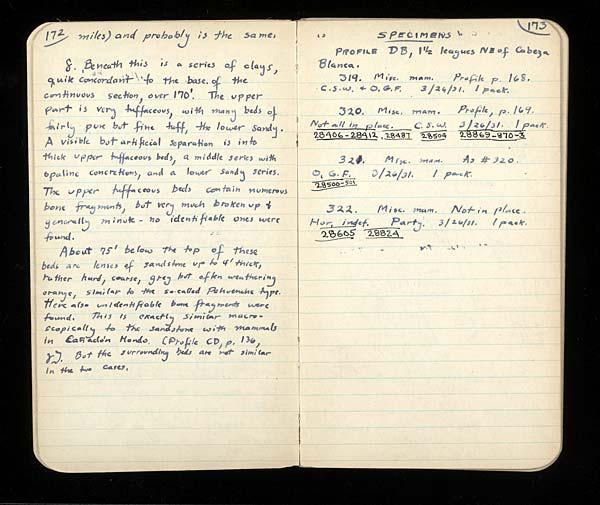 172 miles) and probably is the same.
8. Beneath this is a series of clays,
quite concordant to the base of the
continuous section, over 170'. The upper
part is very tuffaceous, with many beds of
fairly pure but fine tuff, the lower sandy.
A visible but artificial separation is into
thick upper tuffaceous beds, a middle series with
opaline concretions, and a lower sandy series.
The upper tuffaceous beds contain numerous
bone fragments, but very much broken up &
generally minute - no identifiable ones were
found.
About 75' below the top of these
beds are lenses of sandstone up to 4' thick,
rather hard, coarse, grey but often weathering
orange, similar to the so-called Pehuenche type.
Here also unidentifiable bone fragments were
found. This is exactly similar macro-
scopically to the sandstone with mammals
in Cañadón Hondo. [Profile CD, p. 136,
8]. But the surrounding beds are not similar
in the two cases.
173
SPECIMENS
PROFILE DB, 1½ leagues NE of Cabeza
Blanca.
319. Misc. mam. Profile p. 168.
C.S.W. & O.G.F. 3/26/31. 1 pack.
320. Misc. mam. Profile, p. 169.
Not all in place. C.S.W. 3/26/31. 1 pack.
28406-28412, 28487 28504 28869-870-3
321. Misc. mam. As #320.
O.G.F. 3/26/31. 1 pack.
28500-501
322. Misc. mam. Not in place.
Hor. indet. Party. 3/26/31. 1 pack.
28605 28824